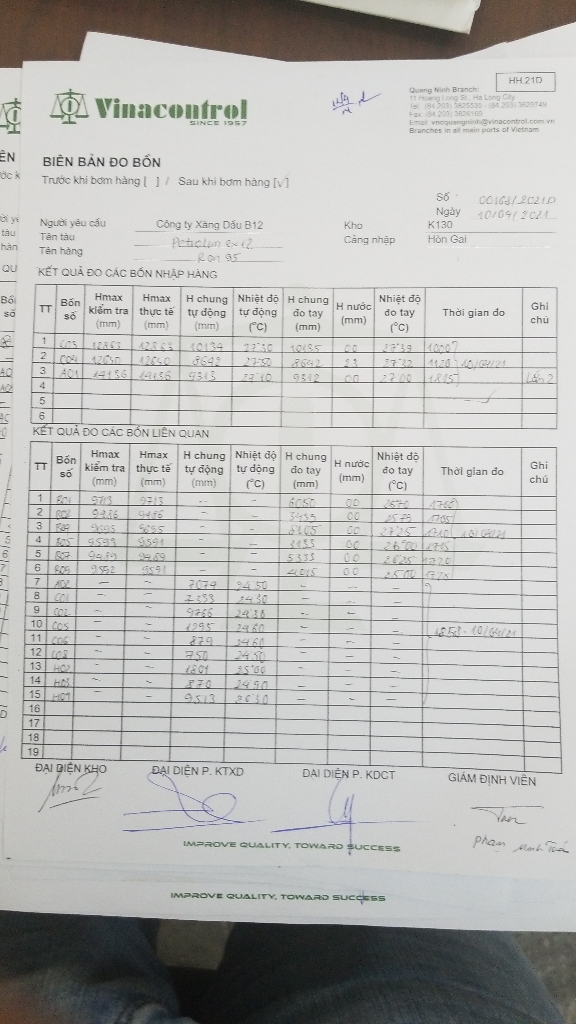 HH.21D
Vinacontrol
SINCE 1957
Quang Ninh Branch:
11 Hoang Long St., Ha Long City
Tel: (84.203) 3825535 - (84.203) 3829749
Fax: (84.203) 3826169
Email: vncquangninh@vinacontrol.com.vn
Branches in all main ports of Vietnam
BIÊN BẢN ĐO BỒN
Trước khi bơm hàng [ ] / Sau khi bơm hàng [√]
Số 00168/2021D
Ngày 10/09/2021
Người yêu cầu Công ty Xăng Dầu B12 Kho K130
Tên tàu Petrolimex 12 Cảng nhập Hòn Gai
Tên hàng Ron 95
KẾT QUẢ ĐO CÁC BỒN NHẬP HÀNG
TT Bồn số Hmax kiểm tra (mm) Hmax thực tế (mm) H chung tự động (mm) Nhiệt độ tự động (°C) H chung đo tay (mm) H nước (mm) Nhiệt độ đo tay (°C) Thời gian đo Ghi chú
1 C03 12863 12863 10134 27.30 10135 00 27.39 1000
2 C04 12650 12650 8642 27.50 8642 23 27.32 1120 10/09/21
3 A01 14136 14136 9313 27.10 9312 00 27.00 1815 Lần 2
4
5
6
KẾT QUẢ ĐO CÁC BỒN LIÊN QUAN
TT Bồn số Hmax kiểm tra (mm) Hmax thực tế (mm) H chung tự động (mm) Nhiệt độ tự động (°C) H chung đo tay (mm) H nước (mm) Nhiệt độ đo tay (°C) Thời gian đo Ghi chú
1 B01 9713 9713 - - 6050 00 1700
2 9486 9486 - - 00 1705
3 - - 00 1710 10/09/21
4 B05 9593 9591 - - 00 26.00 1715
5 B07 9489 9489 - - 5333 00 1720
6 B09 9592 9591 - - 4015 00 25.00 1725
7 A02 - - 7074 24.50 - - -
8 C01 - - 24.30 - - -
9 C02 - - 9766 24.30 - - -
10 C05 - - 1295 24.60 - - - 10/09/21
11 C06 - - 879 24.60 - - -
12 C08 - - 750 24.50 - - -
13 H02 - - 1801 25.00 - - -
14 H03 - - 870 24.90 - - -
15 - - 9513 26.30 - - -
16
17
18
19
ĐẠI DIỆN KHO ĐẠI DIỆN P. KTXD ĐẠI DIỆN P. KDCT GIÁM ĐỊNH VIÊN
Phạm Minh
IMPROVE QUALITY, TOWARD SUCCESS
IMPROVE QUALITY, TOWARD SUCCESS